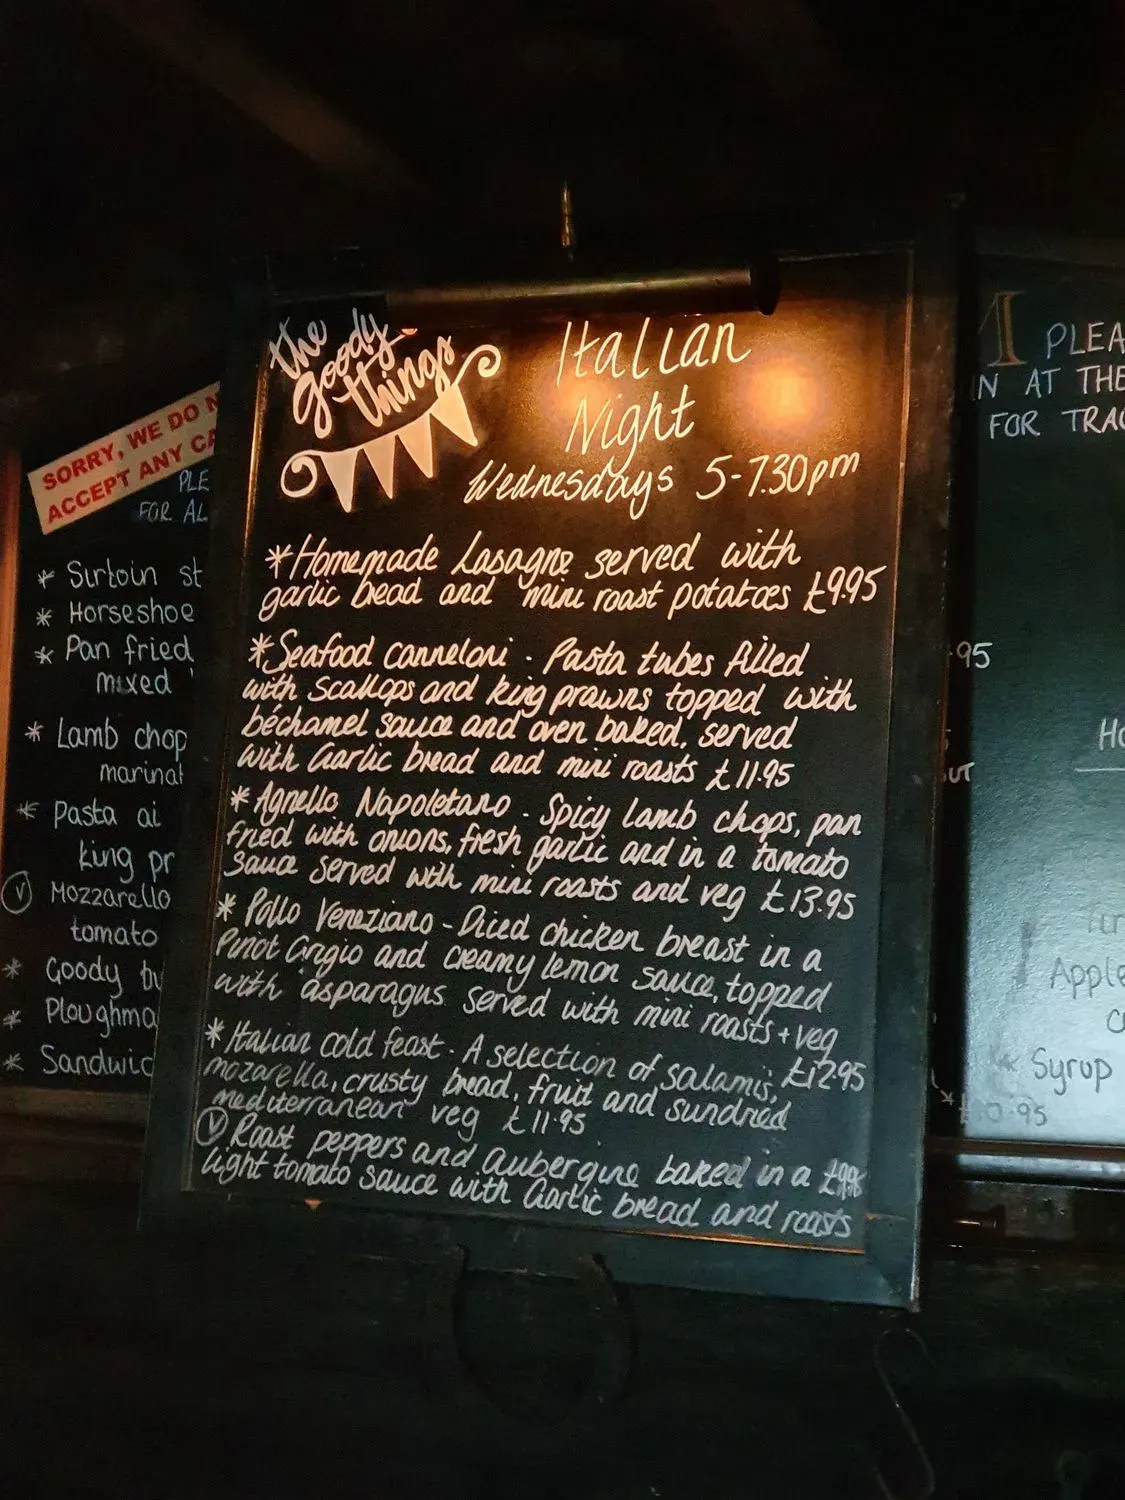 the
goody
things
Italian
Night
Wednesdays 5-7.30pm
*Homemade Lasagne served with
garlic bread and mini roast potatoes £9.95
*Seafood canneloni . Pasta tubes filled
with Scallops and king prawns topped with
béchamel sauce and oven baked, served
with Garlic bread and mini roasts £11.95
* Agnello Napoletano . Spicy lamb chops, pan
fried with onions, fresh garlic and in a tomato
Sauce served with mini roasts and veg £13.95
* Pollo Veneziano - Diced chicken breast in a
Pinot Grigio and creamy lemon sauce, topped
with asparagus served with mini roasts + veg
£12.95
* Italian cold feast - A selection of salamis,
mozarella, crusty bread, fruit and sundried
mediterranean veg £11.95
(V) Roast peppers and aubergine baked in a
light tomato sauce with Garlic bread and roasts
SORRY, WE DO
ACCEPT ANY
PLE
FOR AL
* Sirloin st
* Horseshoe
* Pan fried
mixed
* Lamb chop
marinat
* Pasta ai
king pr
(V) Mozzarella
tomato
* Goody bu
* Ploughma
* Sandwic
PLEA
IN AT THE
FOR TRA
.95
UT
Ho
Apple
c
* Syrup